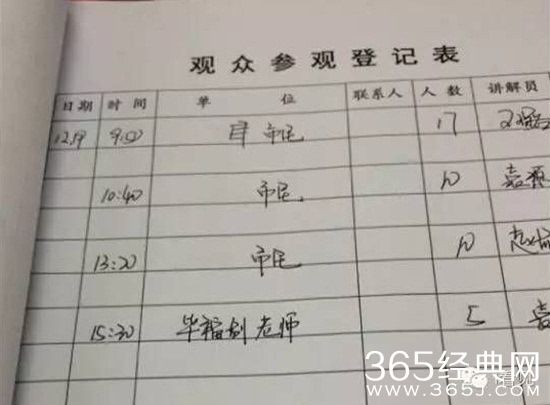 观众参观登记表
日期 时间 单位 联系人 人数 讲解员
12.19 9:00 市民 17
10:40 市民 10
13:20 市民 10
15:30 毕福剑老师 5
365经典网
www.365j.com